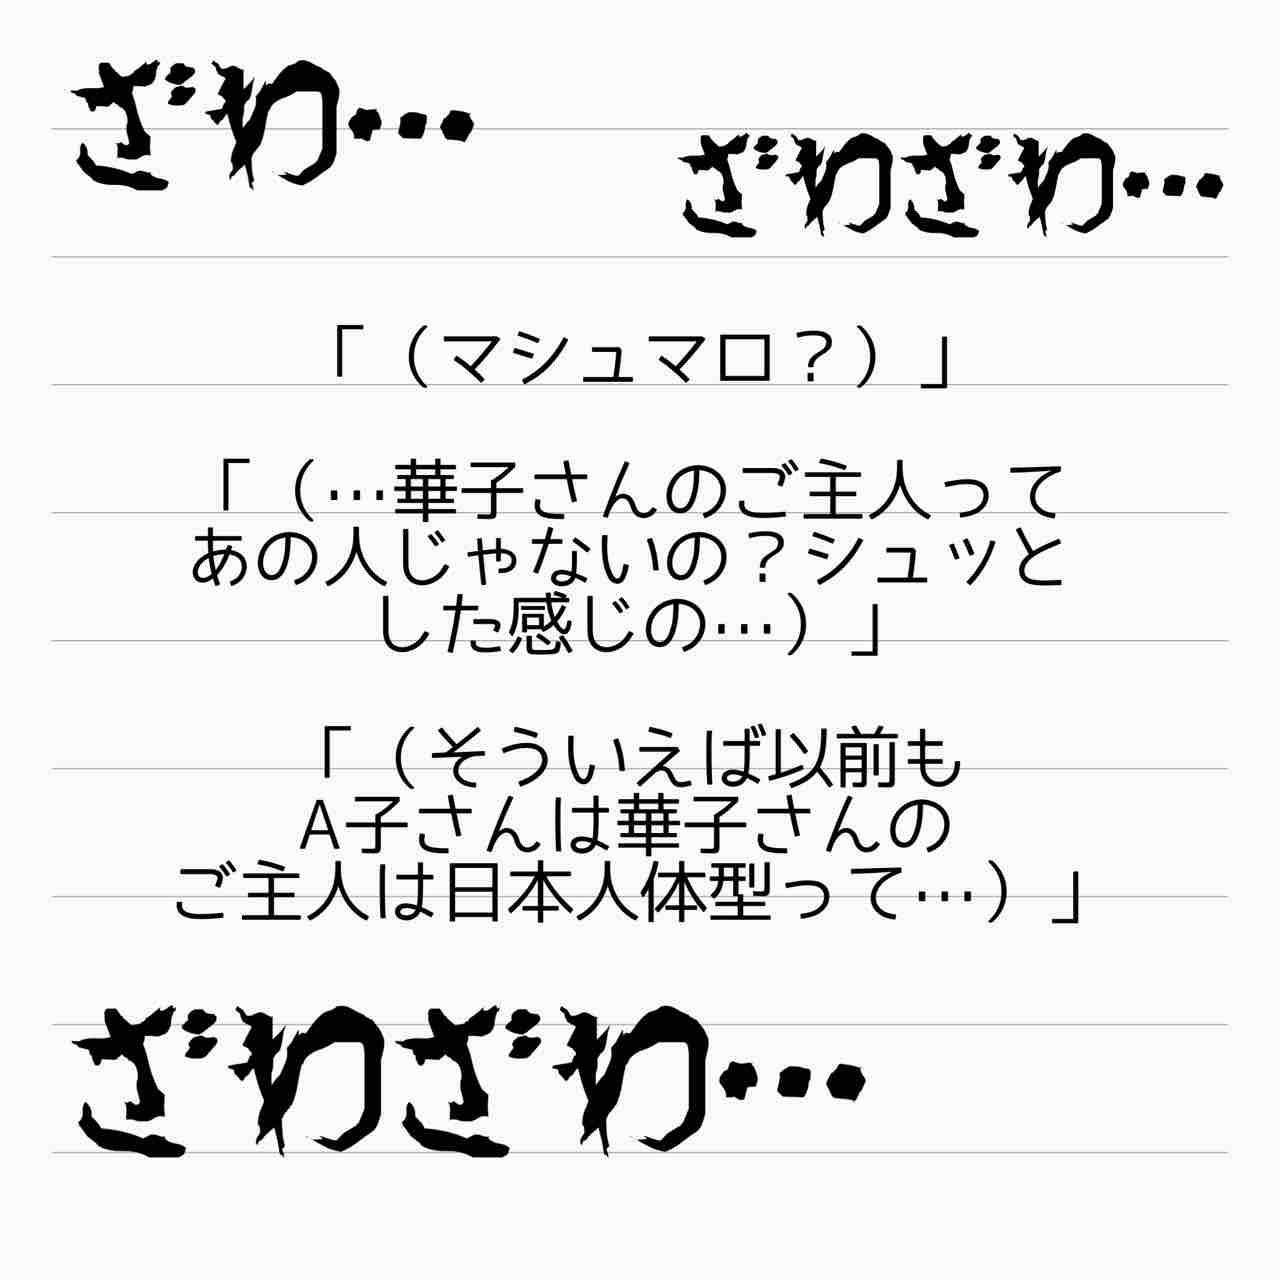 ざわ…
ざわざわ…
「（マシュマロ？）」
「（…華子さんのご主人って
あの人じゃないの？シュッと
した感じの…）」
「（そういえば以前も
A子さんは華子さんの
ご主人は日本人体型って…）」
ざわざわ…